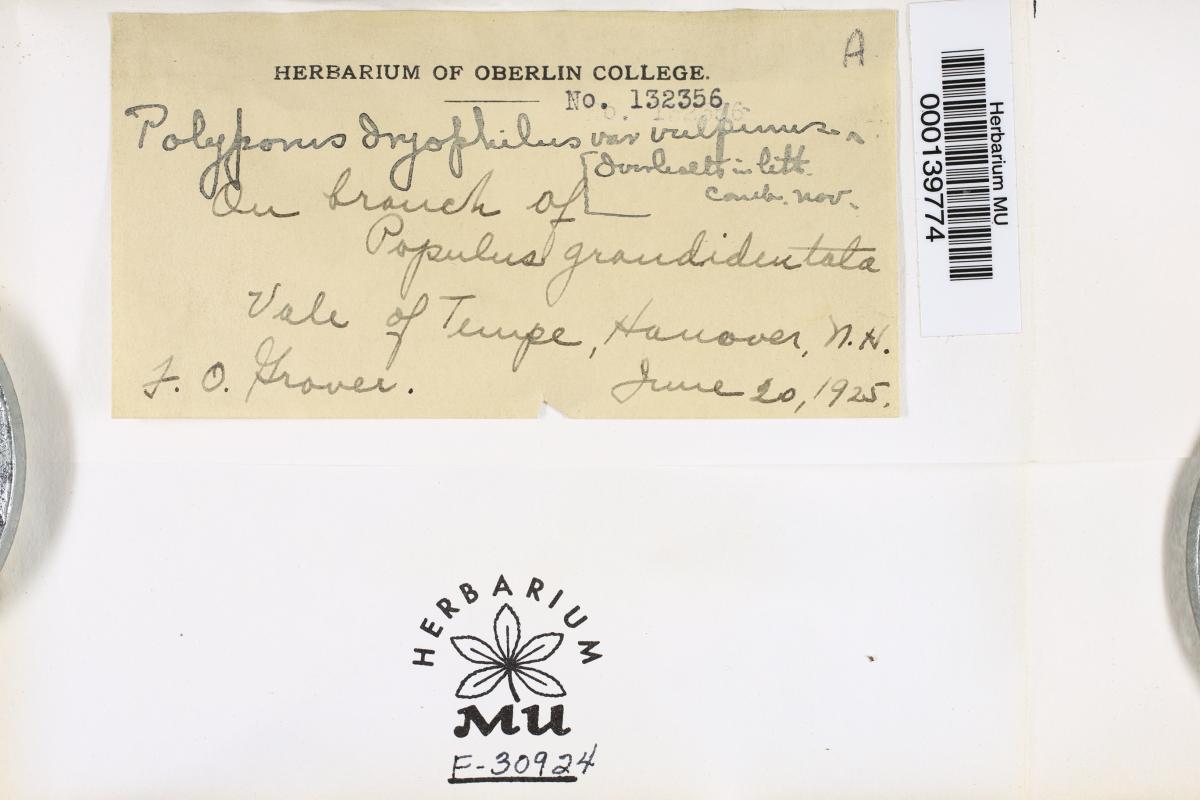 A
HERBARIUM OF OBERLIN COLLEGE.
No. 132356
Polyporus dryophilus var vulpinus
[Overholts in litt.
comb. nov.
On branch of
Populus grandidentata
Vale of Tempe, Hanover, N.H.
F. O. Grover. June 20, 1925.
Herbarium MU
000139774
HERBARIUM
MU
F-30924